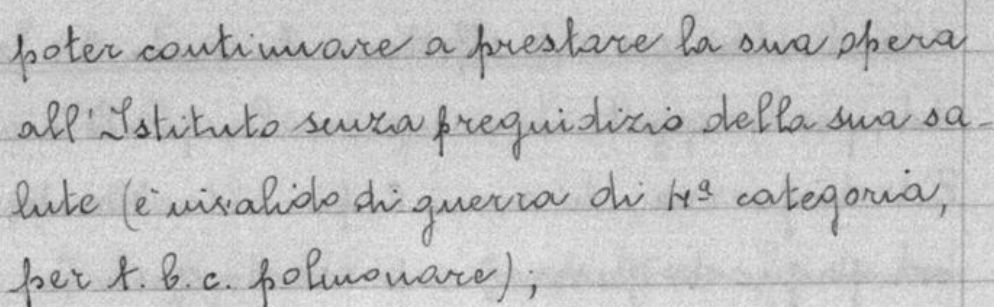 poter continuare a prestare la sua opera
all'Istituto senza preguidizio della sua sa-
lute (è invalido di guerra di 4ª categoria,
per t.b.c. polmonare);